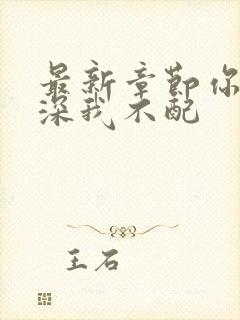 最新章节你
深我不配
王石